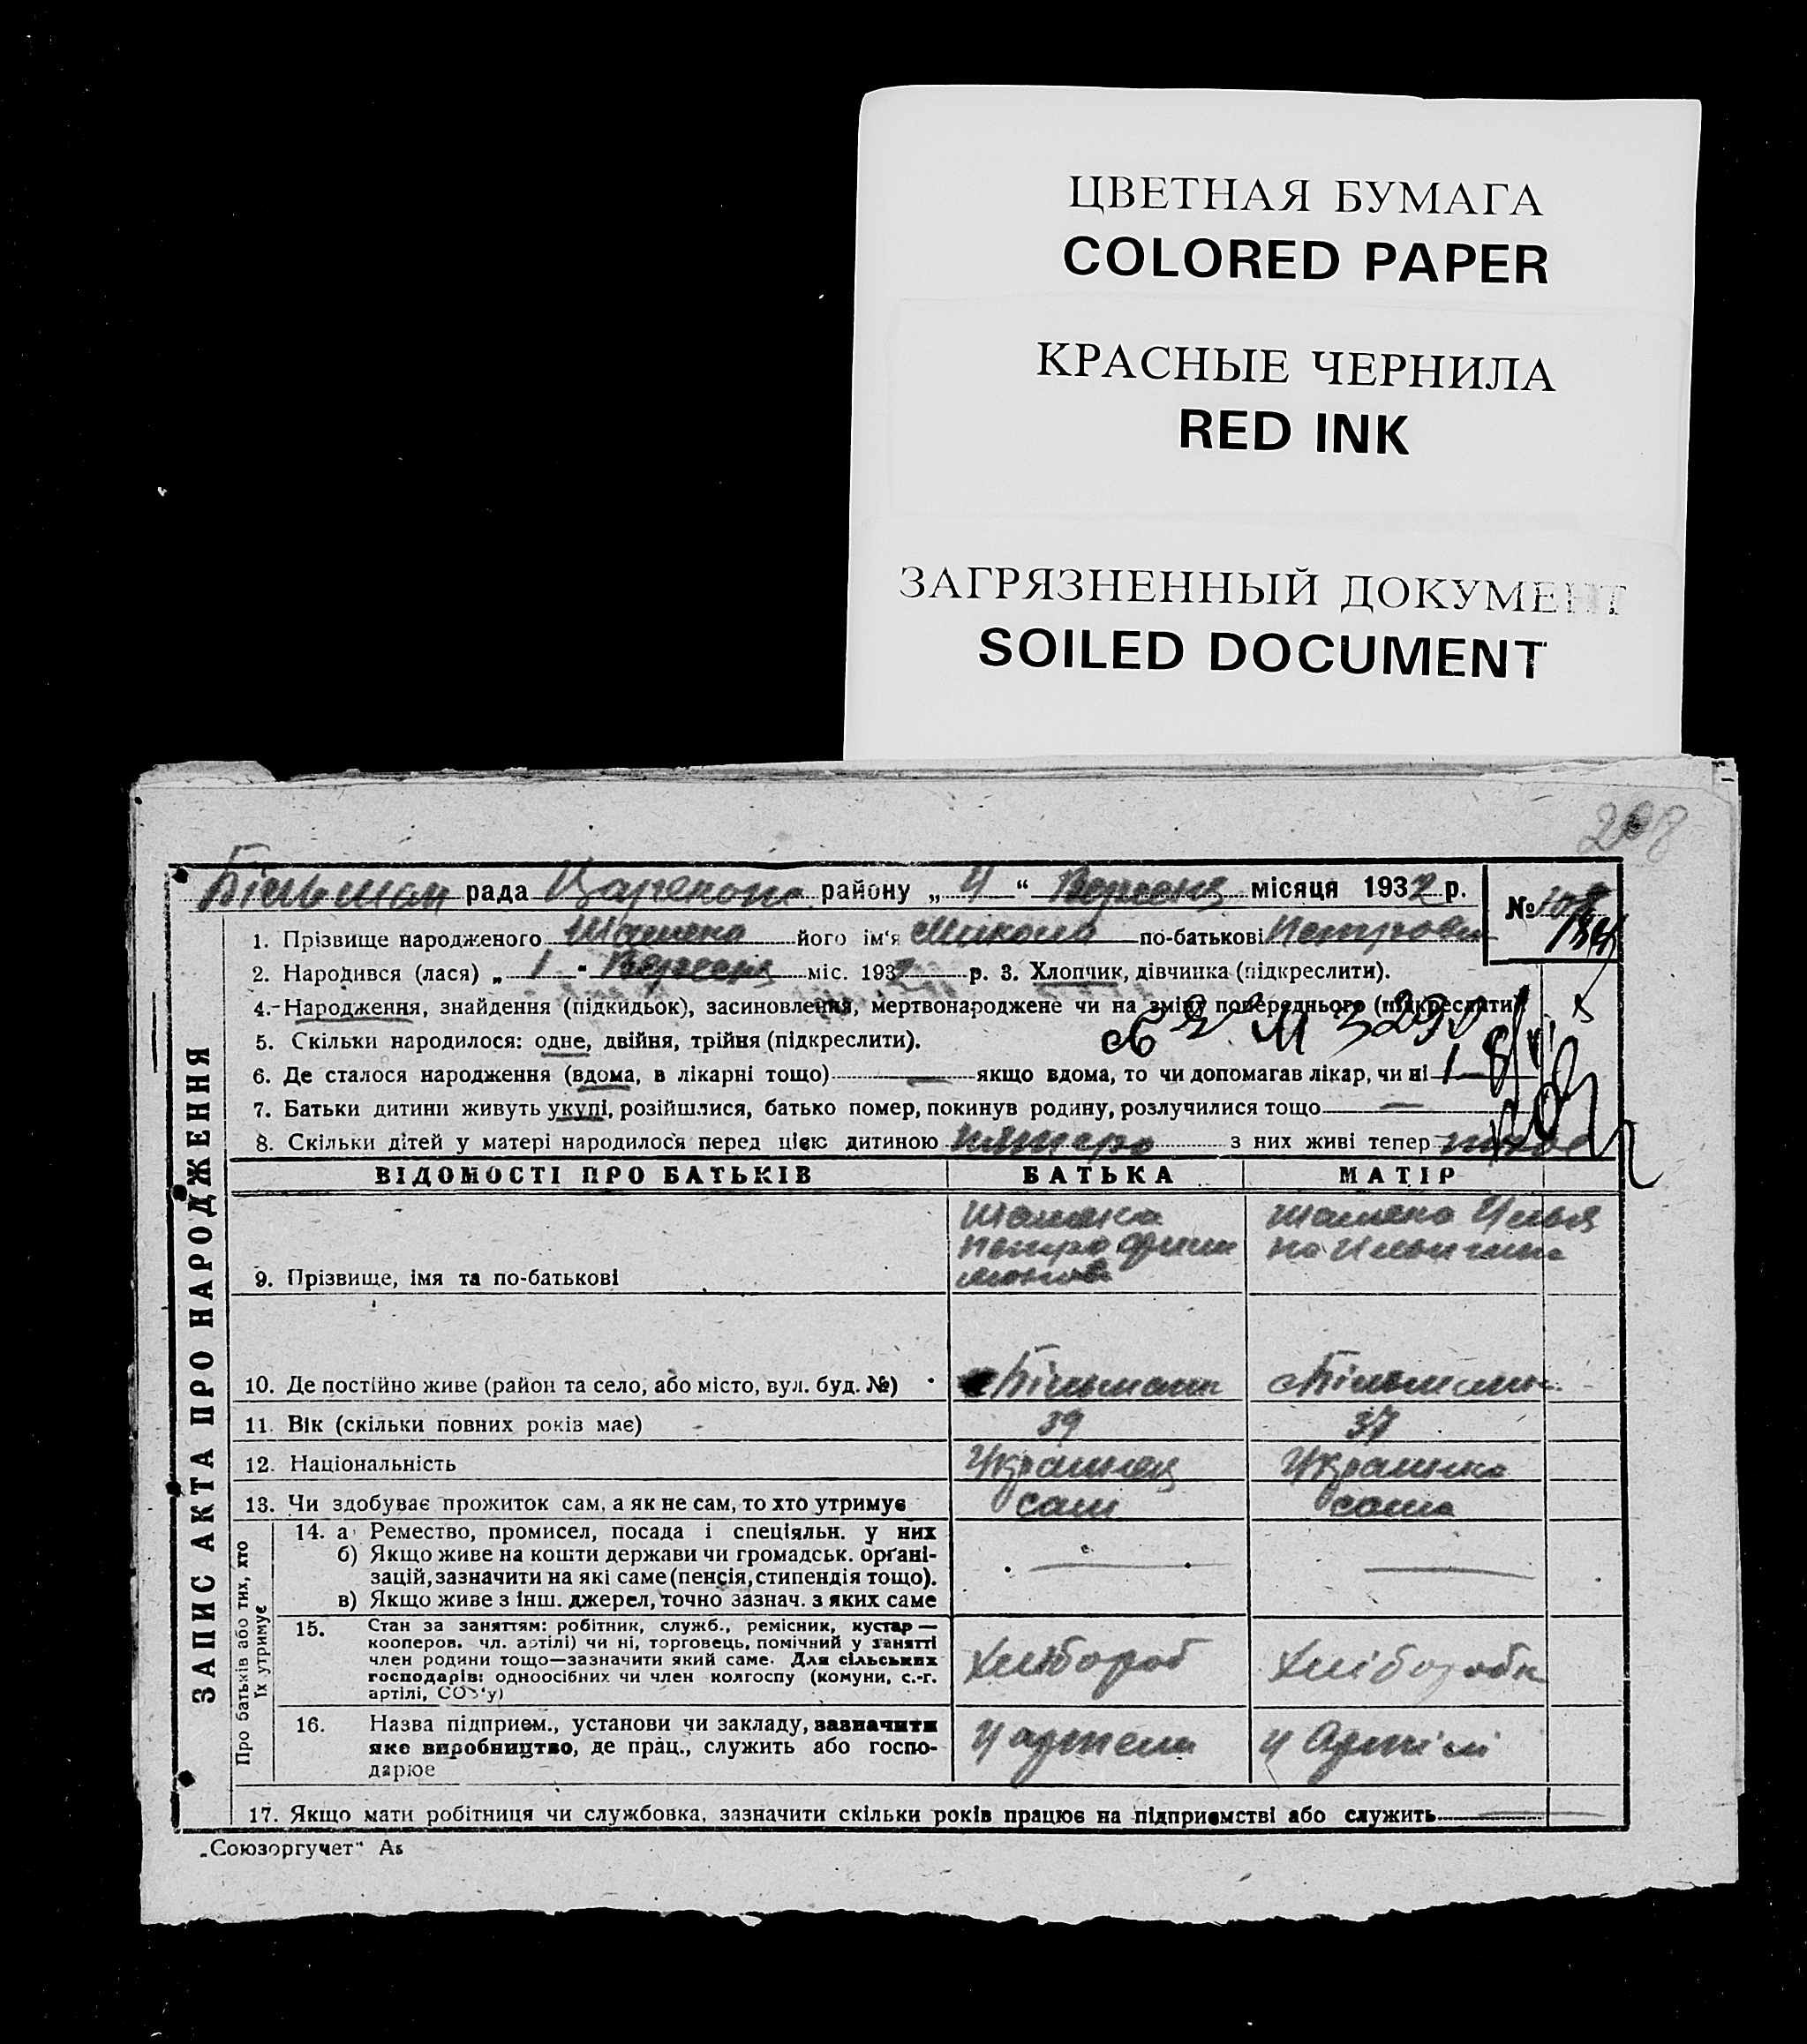 ЦВЕТНАЯ БУМАГА
COLORED PAPER
КРАСНЫЕ ЧЕРНИЛА
RED INK
ЗАГРЯЗНЕННЫЙ ДОКУМЕНТ
SOILED DOCUMENT
208
рада района району „ 4 “ Вересня місяця 1932 р.
№ 108
134
1. Прізвище народженого його ім‘я Микола по-батькові
2. Народився (лася) „ 1 “ Вересня міс. 1932 р. 3. Хлопчик, дівчинка (підкреслити).
4. Народження, знайдення (підкидьок), засиновлення, мертвонароджене чи на зміну попереднього (підкреслити)
5. Скільки народилося: одне, двійня, трійня (підкреслити).
6. Де сталося народження (вдома, в лікарні тощо) — якщо вдома, то чи допомагав лікар, чи ні
7. Батьки дитини живуть укупі, розійшлися, батько помер, покинув родину, розлучилися тощо —
8. Скільки дітей у матері народилося перед цією дитиною з них живі тепер
ЗАПИС АКТА ПРО НАРОДЖЕННЯ
ВІДОМОСТІ ПРО БАТЬКІВ БАТЬКА МАТІР
9. Прізвище, імя та по-батькові
10. Де постійно живе (район та село, або місто, вул. буд. №)
11. Вік (скільки повних років має) 39 37
12. Національність Українец Українка
13. Чи здобуває прожиток сам, а як не сам, то хто утримує сам сама
Про батьків або тих, хто
їх утримує
14. а Ремество, промисел, посада і спеціяльн. у них
б) Якщо живе на кошти держави чи громадськ. органі-
зацій, зазначити на які саме (пенсія, стипендія тощо).
в) Якщо живе з інш. джерел, точно зазнач. з яких саме
15. Стан за заняттям: робітник, служб., ремісник, кустар —
кооперов. чл. артілі) чи ні, торговець, помічний у занятті
член родини тощо—зазначити який саме. Для сільських
господарів: одноосібних чи член колгоспу (комуни, с.-г.
артілі, СОЗ‘у)
Хлібороб Хліборобка
16. Назва підприєм., установи чи закладу, зазначити
яке виробництво, де прац., служить або госпо-
дарює
У артели у Артілі
17. Якщо мати робітниця чи службовка, зазначити скільки років працює на підприємстві або служить
„Союзоргучет“